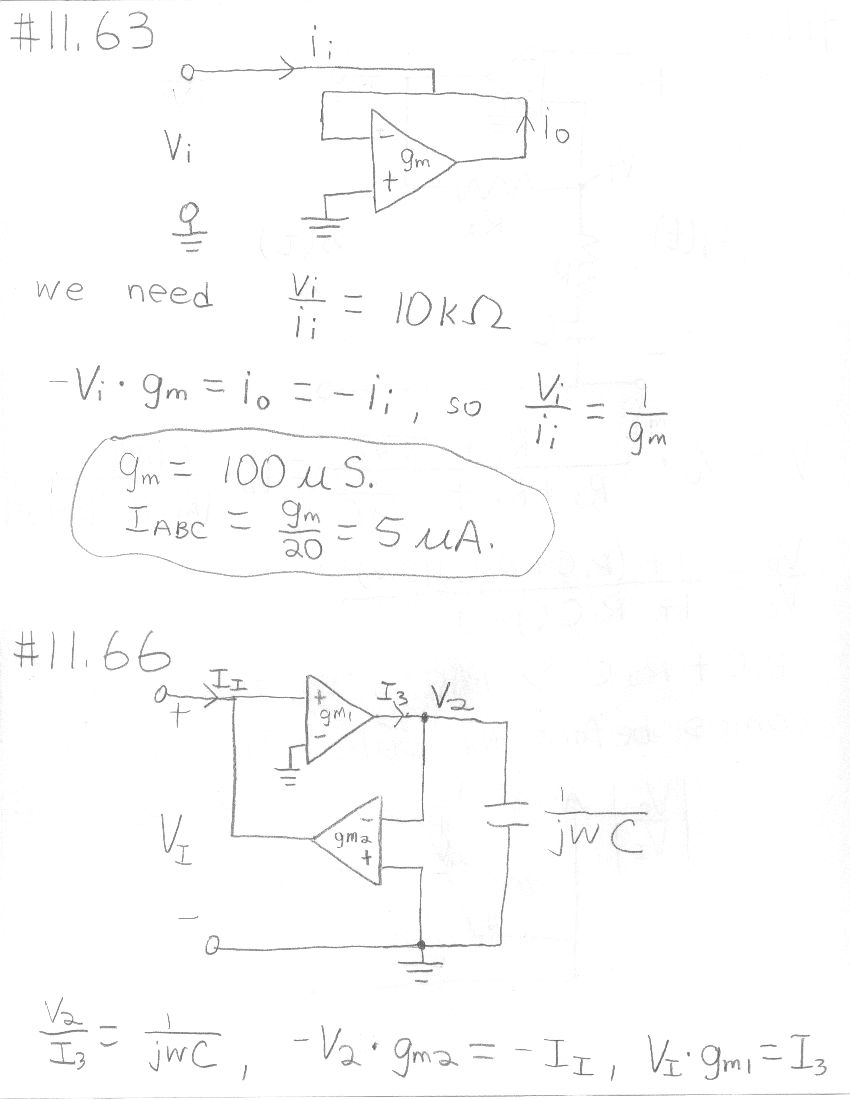 #11.63
i_i
V_i
i_o
-
g_m
+
we need V_i/i_i = 10kΩ
-V_i · g_m = i_o = -i_i, so V_i/i_i = 1/g_m
g_m = 100 μS.
I_ABC = g_m/20 = 5 μA.
#11.66
I_I
+
+
g_m1
-
I_3
V_2
V_I
-
g_m2
+
1/jωC
-
V_2/I_3 = 1/jωC, -V_2 · g_m2 = -I_I, V_I · g_m1 = I_3